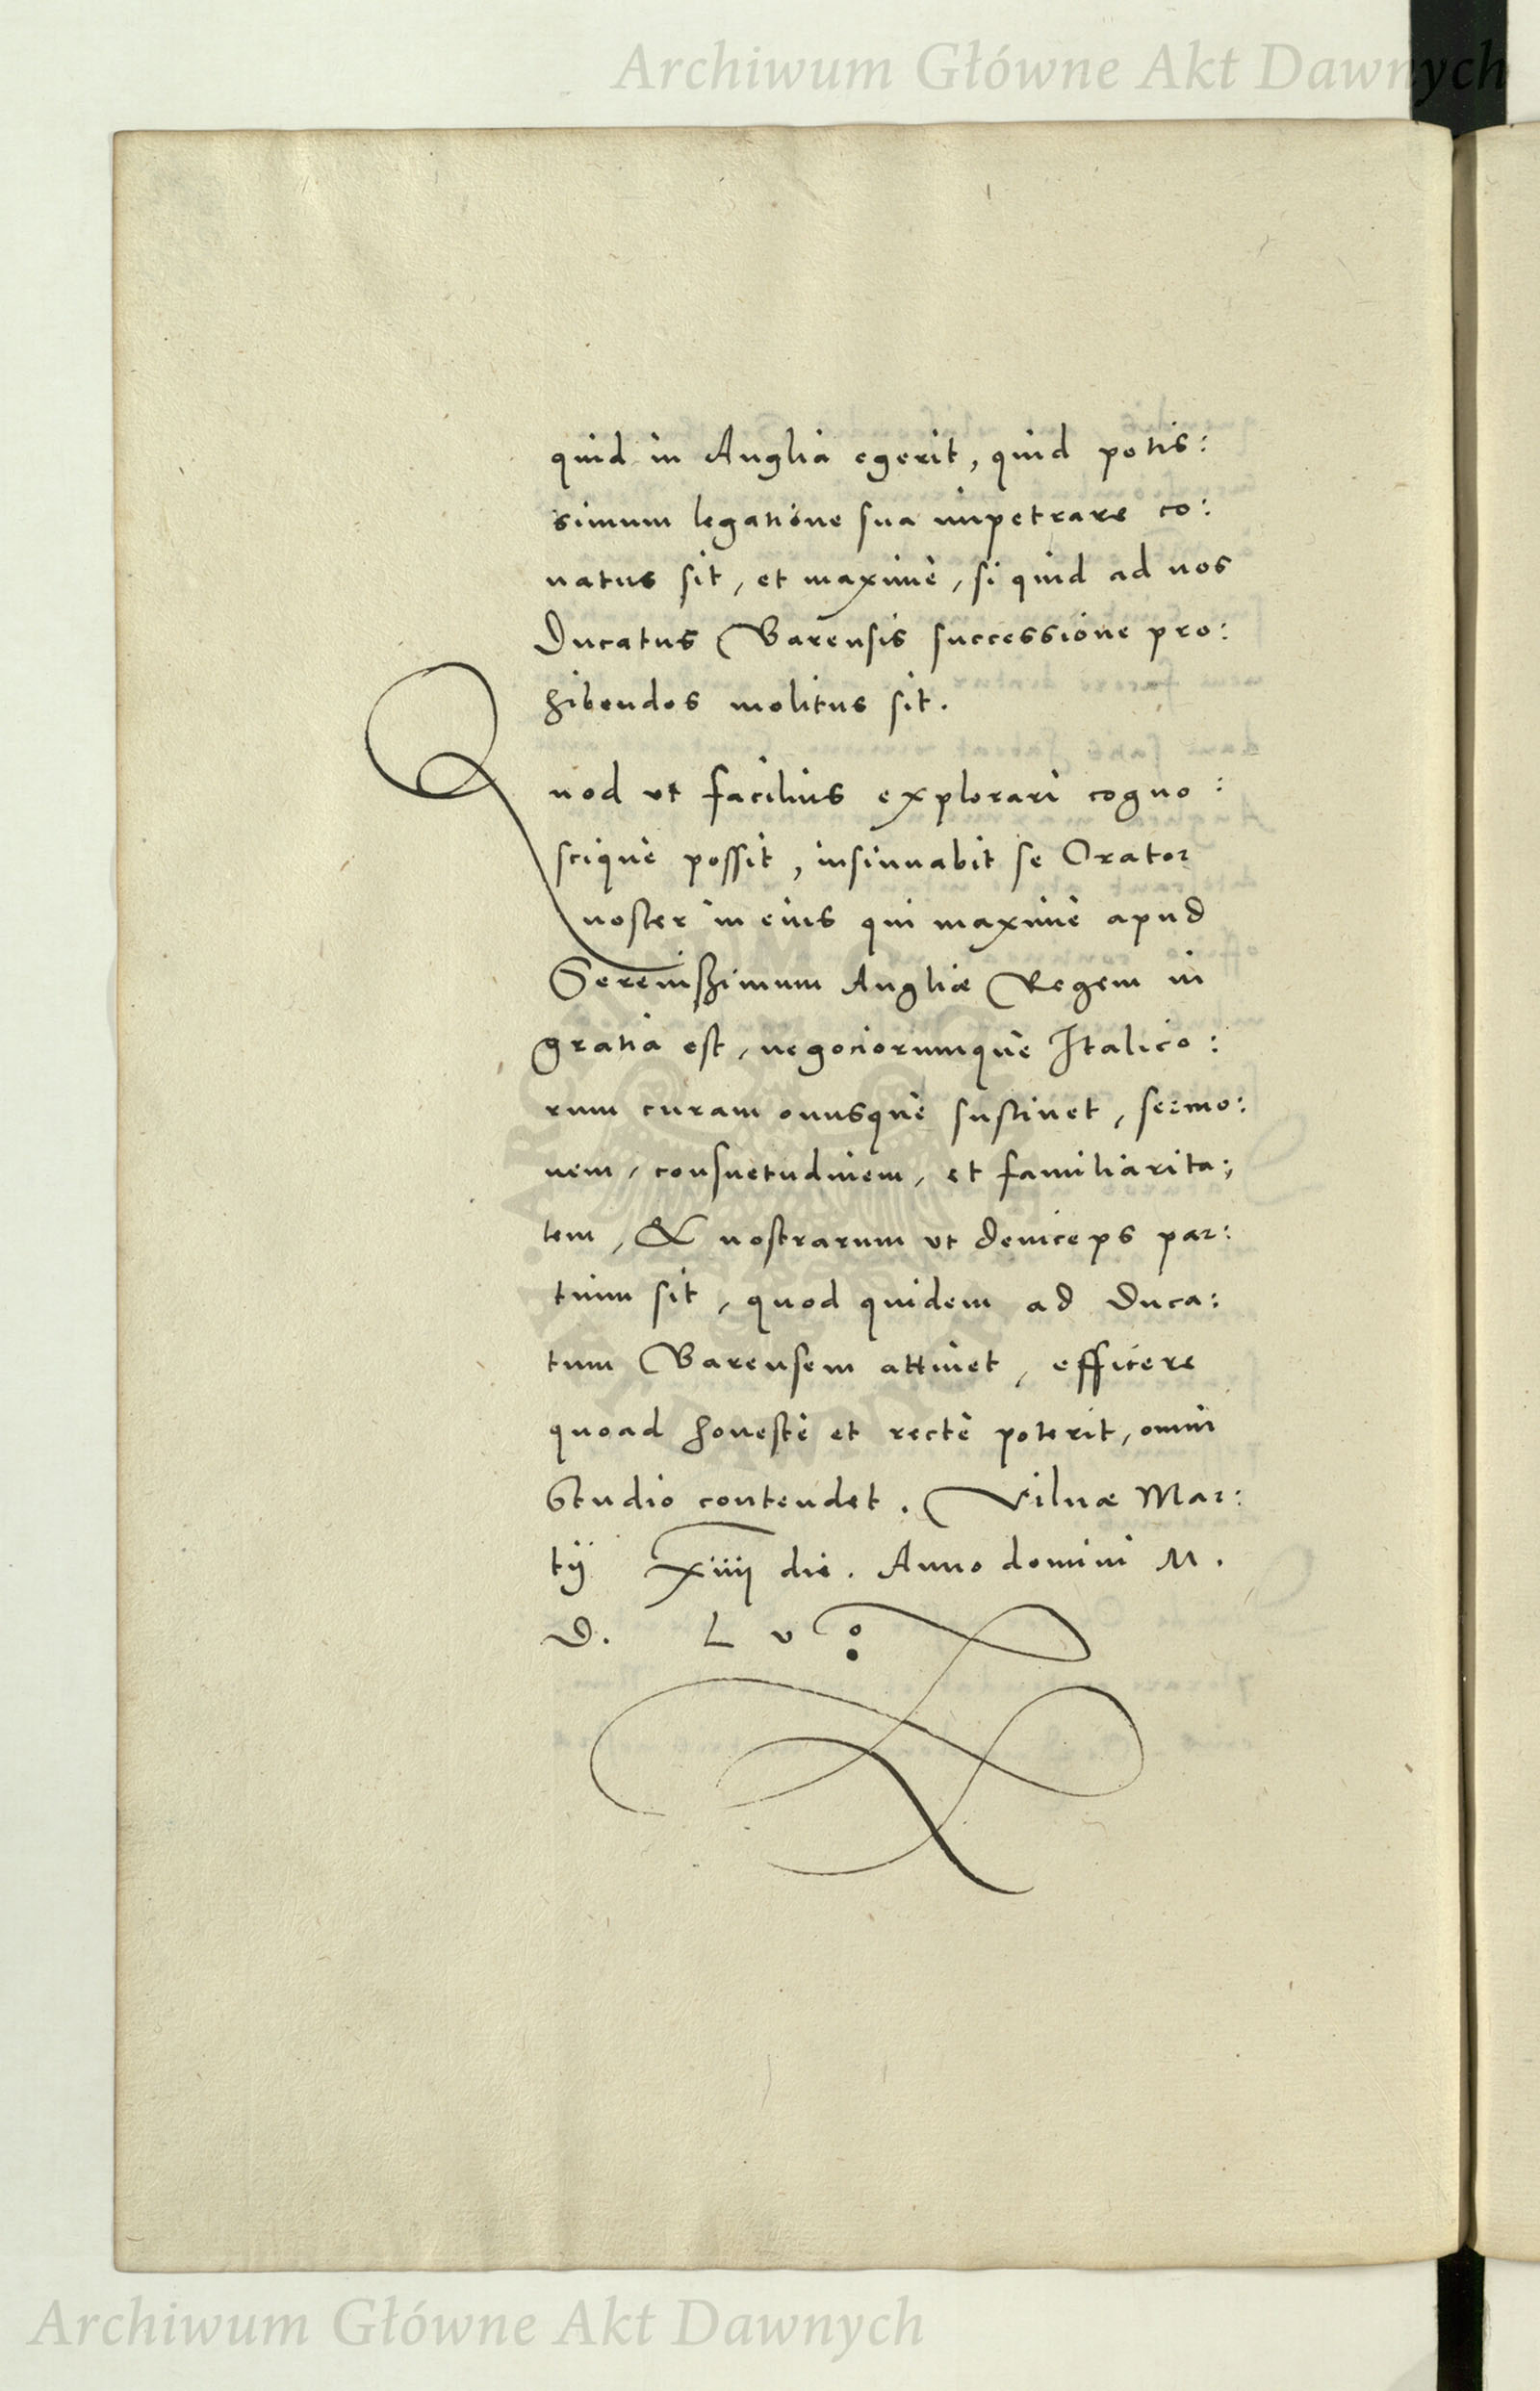 Archiwum Główne Akt Dawnych
quid in Anglia egerit, quid potis:
simum legatione sua impetrare co:
natus sit, et maximè, si quid ad nos
Ducatus Barensis successione pro:
hibendos molitus sit.
Quod ut facilius explorari cogno:
scique possit, insinuabit se Orator
noster in eius qui maximè apud
Serenissimum Angliæ Regem in
gratia est, negociorumque Italico:
rum curam onusque sustinet, sermo:
nem, consuetudinem, et familiarita:
tem, & nostrarum ut deinceps par:
tium sit, quod quidem ad Duca:
tum Barensem attinet, efficere
quoad honestè et rectè poterit, omni
studio contendet. Vilnæ Mar:
tij xiiij die. Anno domini M.
D. L v°.
Archiwum Główne Akt Dawnych